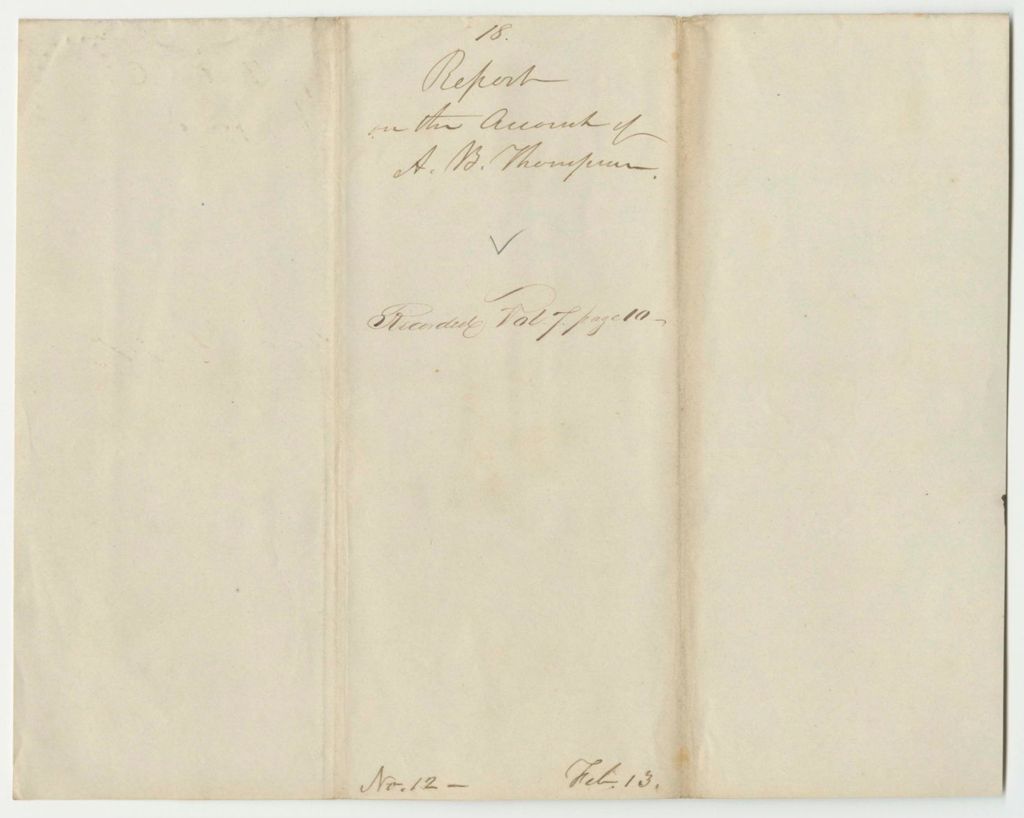 18.
Report
on the Account of
A. B. Thompson.
Recorded Vol. 7. page 10 –
No. 12 – Feb. 13.